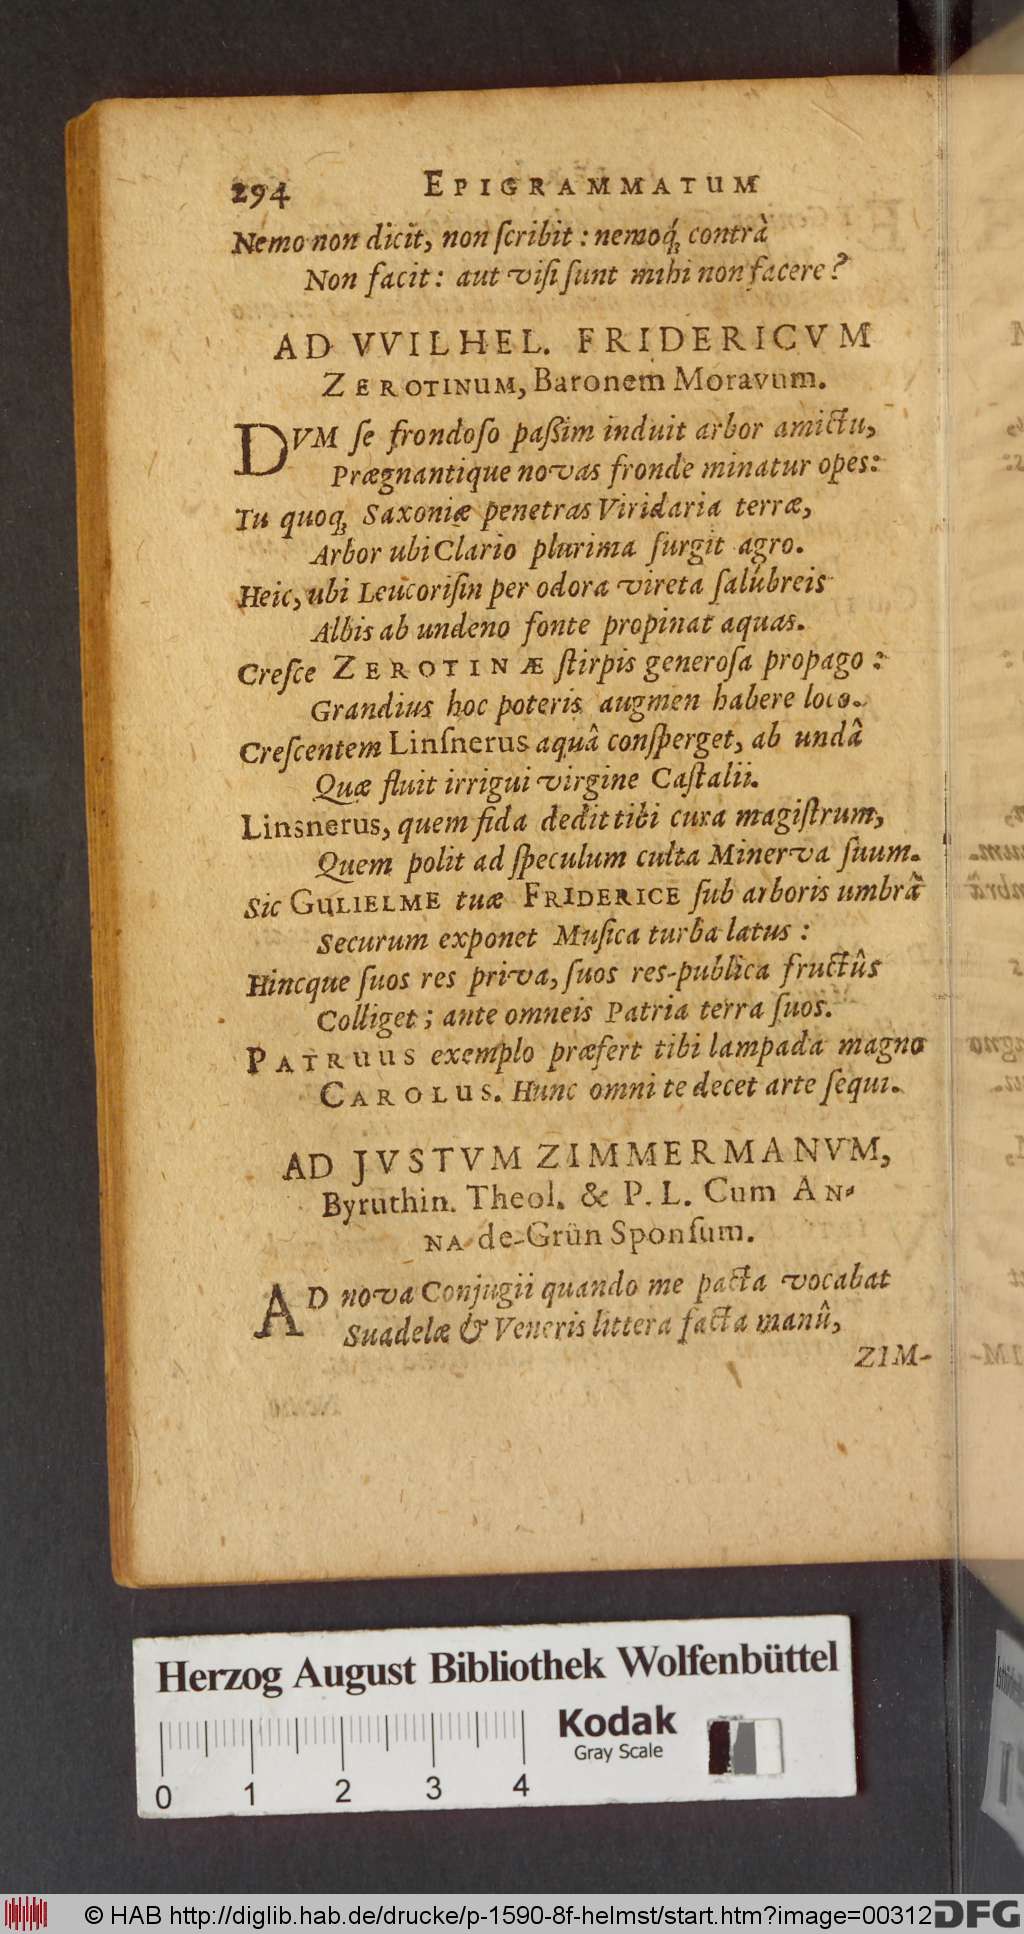 294 EPIGRAMMATUM
Nemo non dicit, non ſcribit : nemoq́; contrà
Non facit : aut viſi ſunt mihi non facere ?
AD VVILHEL. FRIDERICVM
ZEROTINUM, Baronem Moravum.
DVM ſe frondoſo paßim induit arbor amictu,
Prægnantique novas fronde minatur opes:
Tu quoq; Saxoniæ penetras Viridaria terræ,
Arbor ubi Clario plurima ſurgit agro.
Heic, ubi Leucoriſin per odora vireta ſalubreis
Albis ab undeno fonte propinat aquas.
Creſce ZEROTINÆ ſtirpis generoſa propago :
Grandius hoc poteris augmen habere loco.
Creſcentem Linſnerus aquâ conſperget, ab undâ
Quæ fluit irrigui virgine Caſtalii.
Linsnerus, quem fida dedit tibi cura magiſtrum,
Quem polit ad ſpeculum culta Minerva ſuum.
Sic GULIELME tuæ FRIDERICE ſub arboris umbrâ
Securum exponet Muſica turba latus :
Hincque ſuos res priva, ſuos res-publica fructûs
Colliget ; ante omneis Patria terra ſuos.
PATRUUS exemplo præfert tibi lampada magno
CAROLUS. Hunc omni te decet arte ſequi.
AD JVSTVM ZIMMERMANVM,
Byruthin. Theol. & P. L. Cum AN-
NA de-Grün Sponſum.
AD nova Conjugii quando me pacta vocabat
Suadelæ & Veneris littera facta manû,
ZIM-
Herzog August Bibliothek Wolfenbüttel
Kodak
Gray Scale
0 1 2 3 4
© HAB http://diglib.hab.de/drucke/p-1590-8f-helmst/start.htm?image=00312
DFG